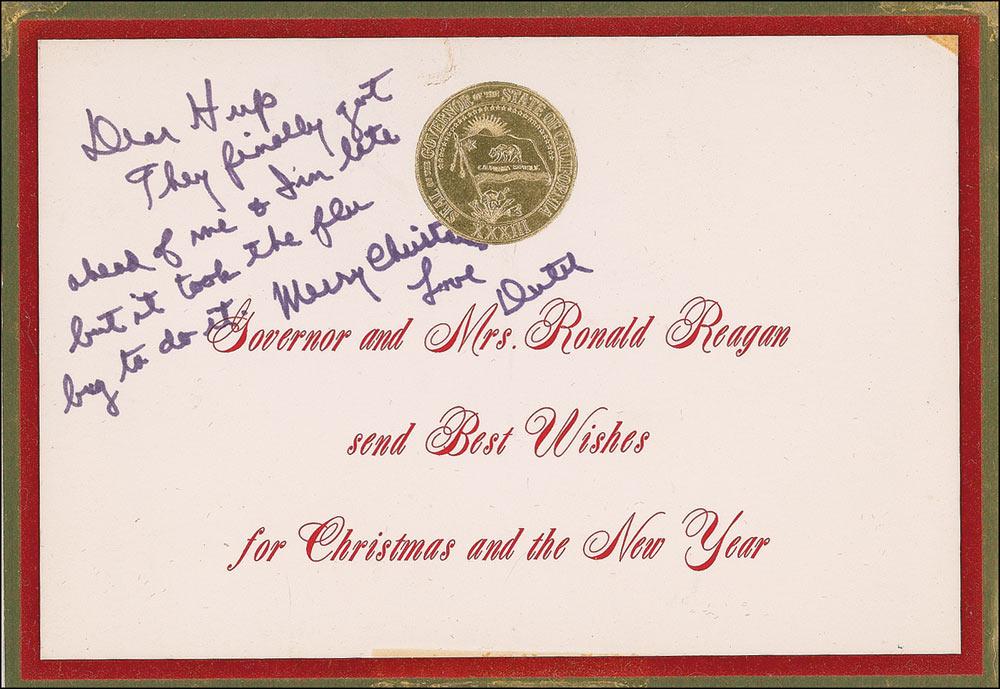 Dear Hup
They finally got
ahead of me & I'm late
but it took the flu
bug to do it. Merry Christmas
Love Dutch
SEAL OF THE GOVERNOR OF THE STATE OF CALIFORNIA
CALIFORNIA REPUBLIC
XXXIII
Governor and Mrs. Ronald Reagan
send Best Wishes
for Christmas and the New Year